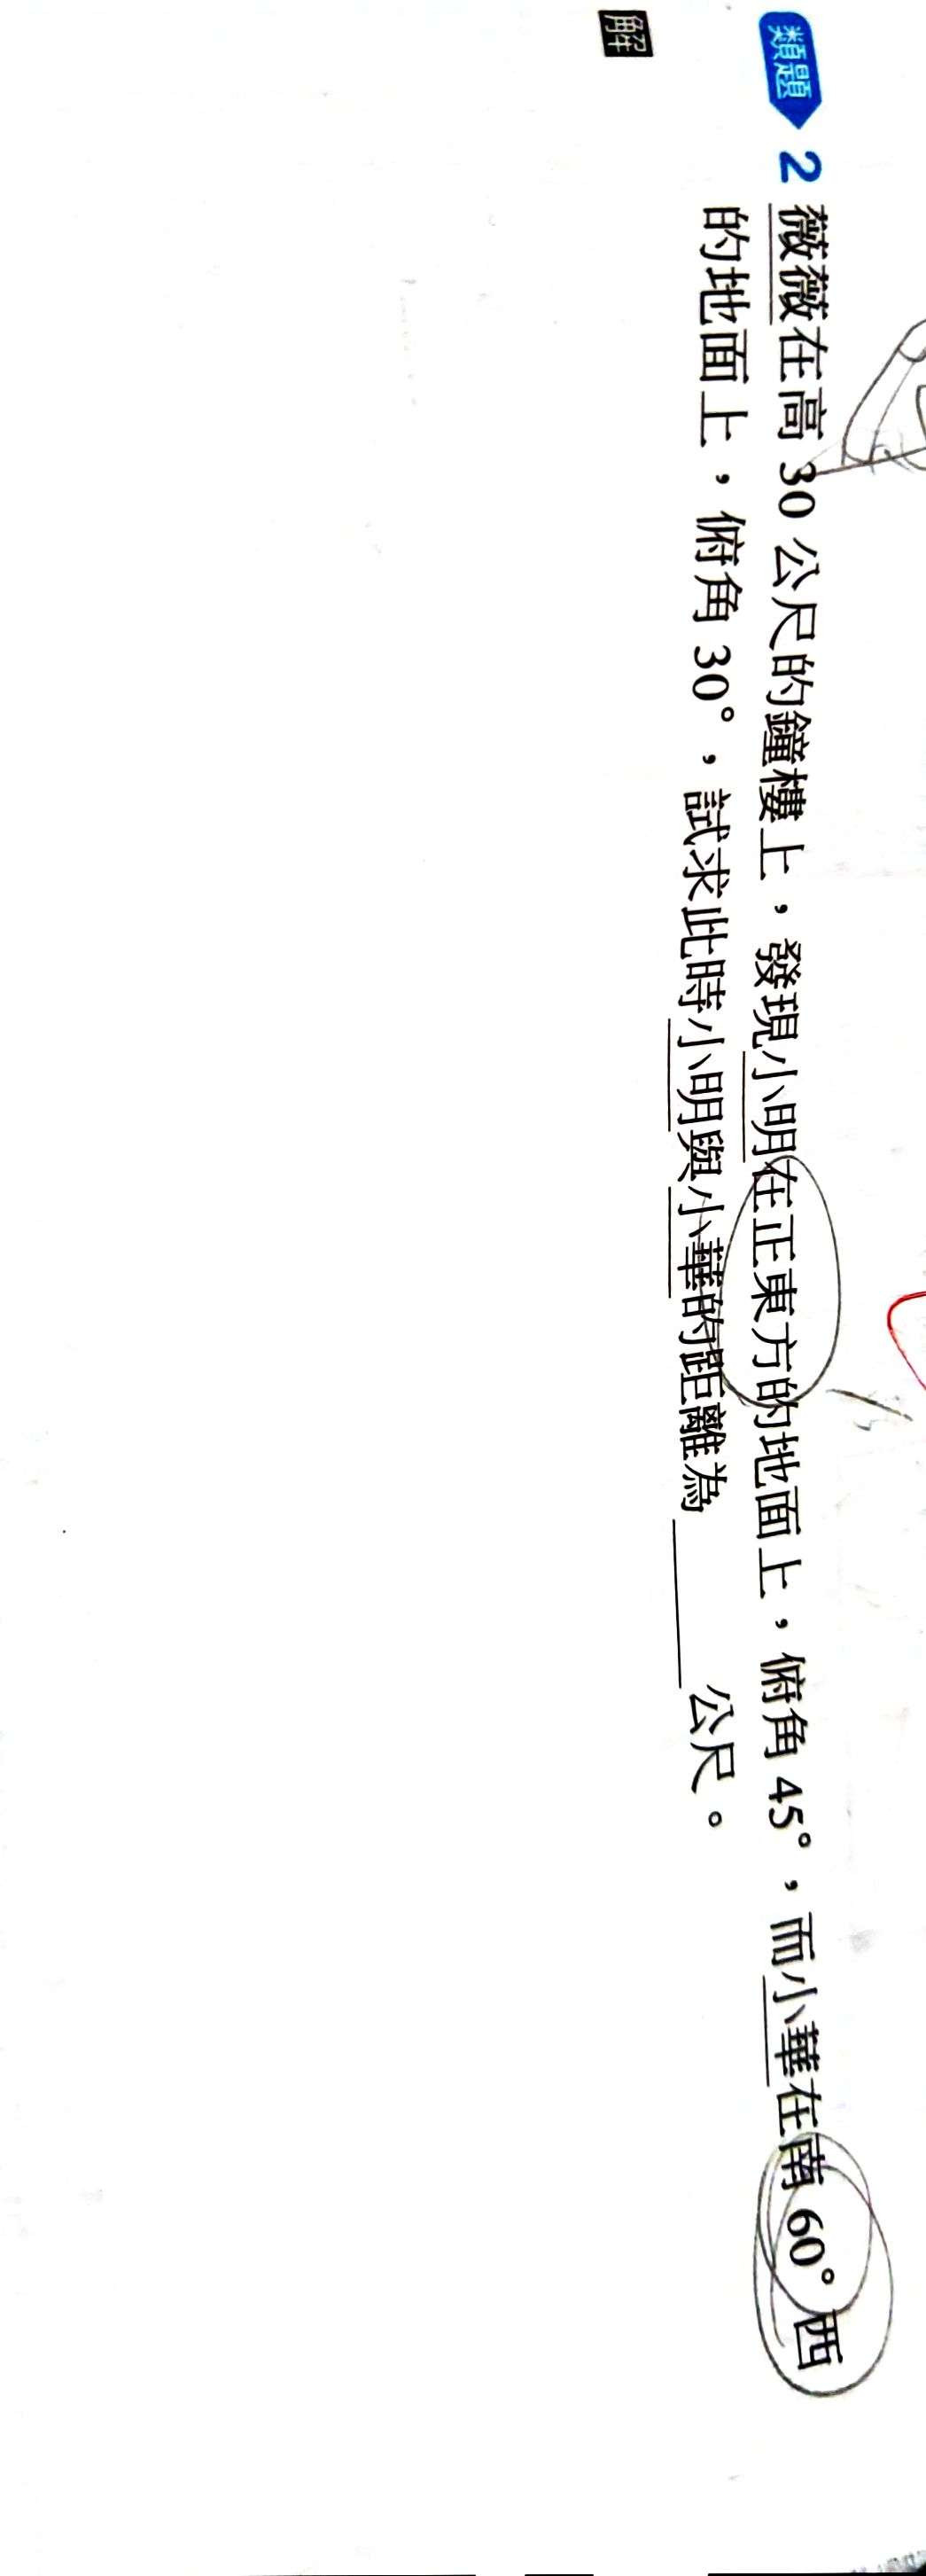 類題 2 薇薇在高 30 公尺的鐘樓上，發現小明在正東方的地面上，俯角 45°，而小華在南 60° 西
的地面上，俯角 30°，試求此時小明與小華的距離為______公尺。
解